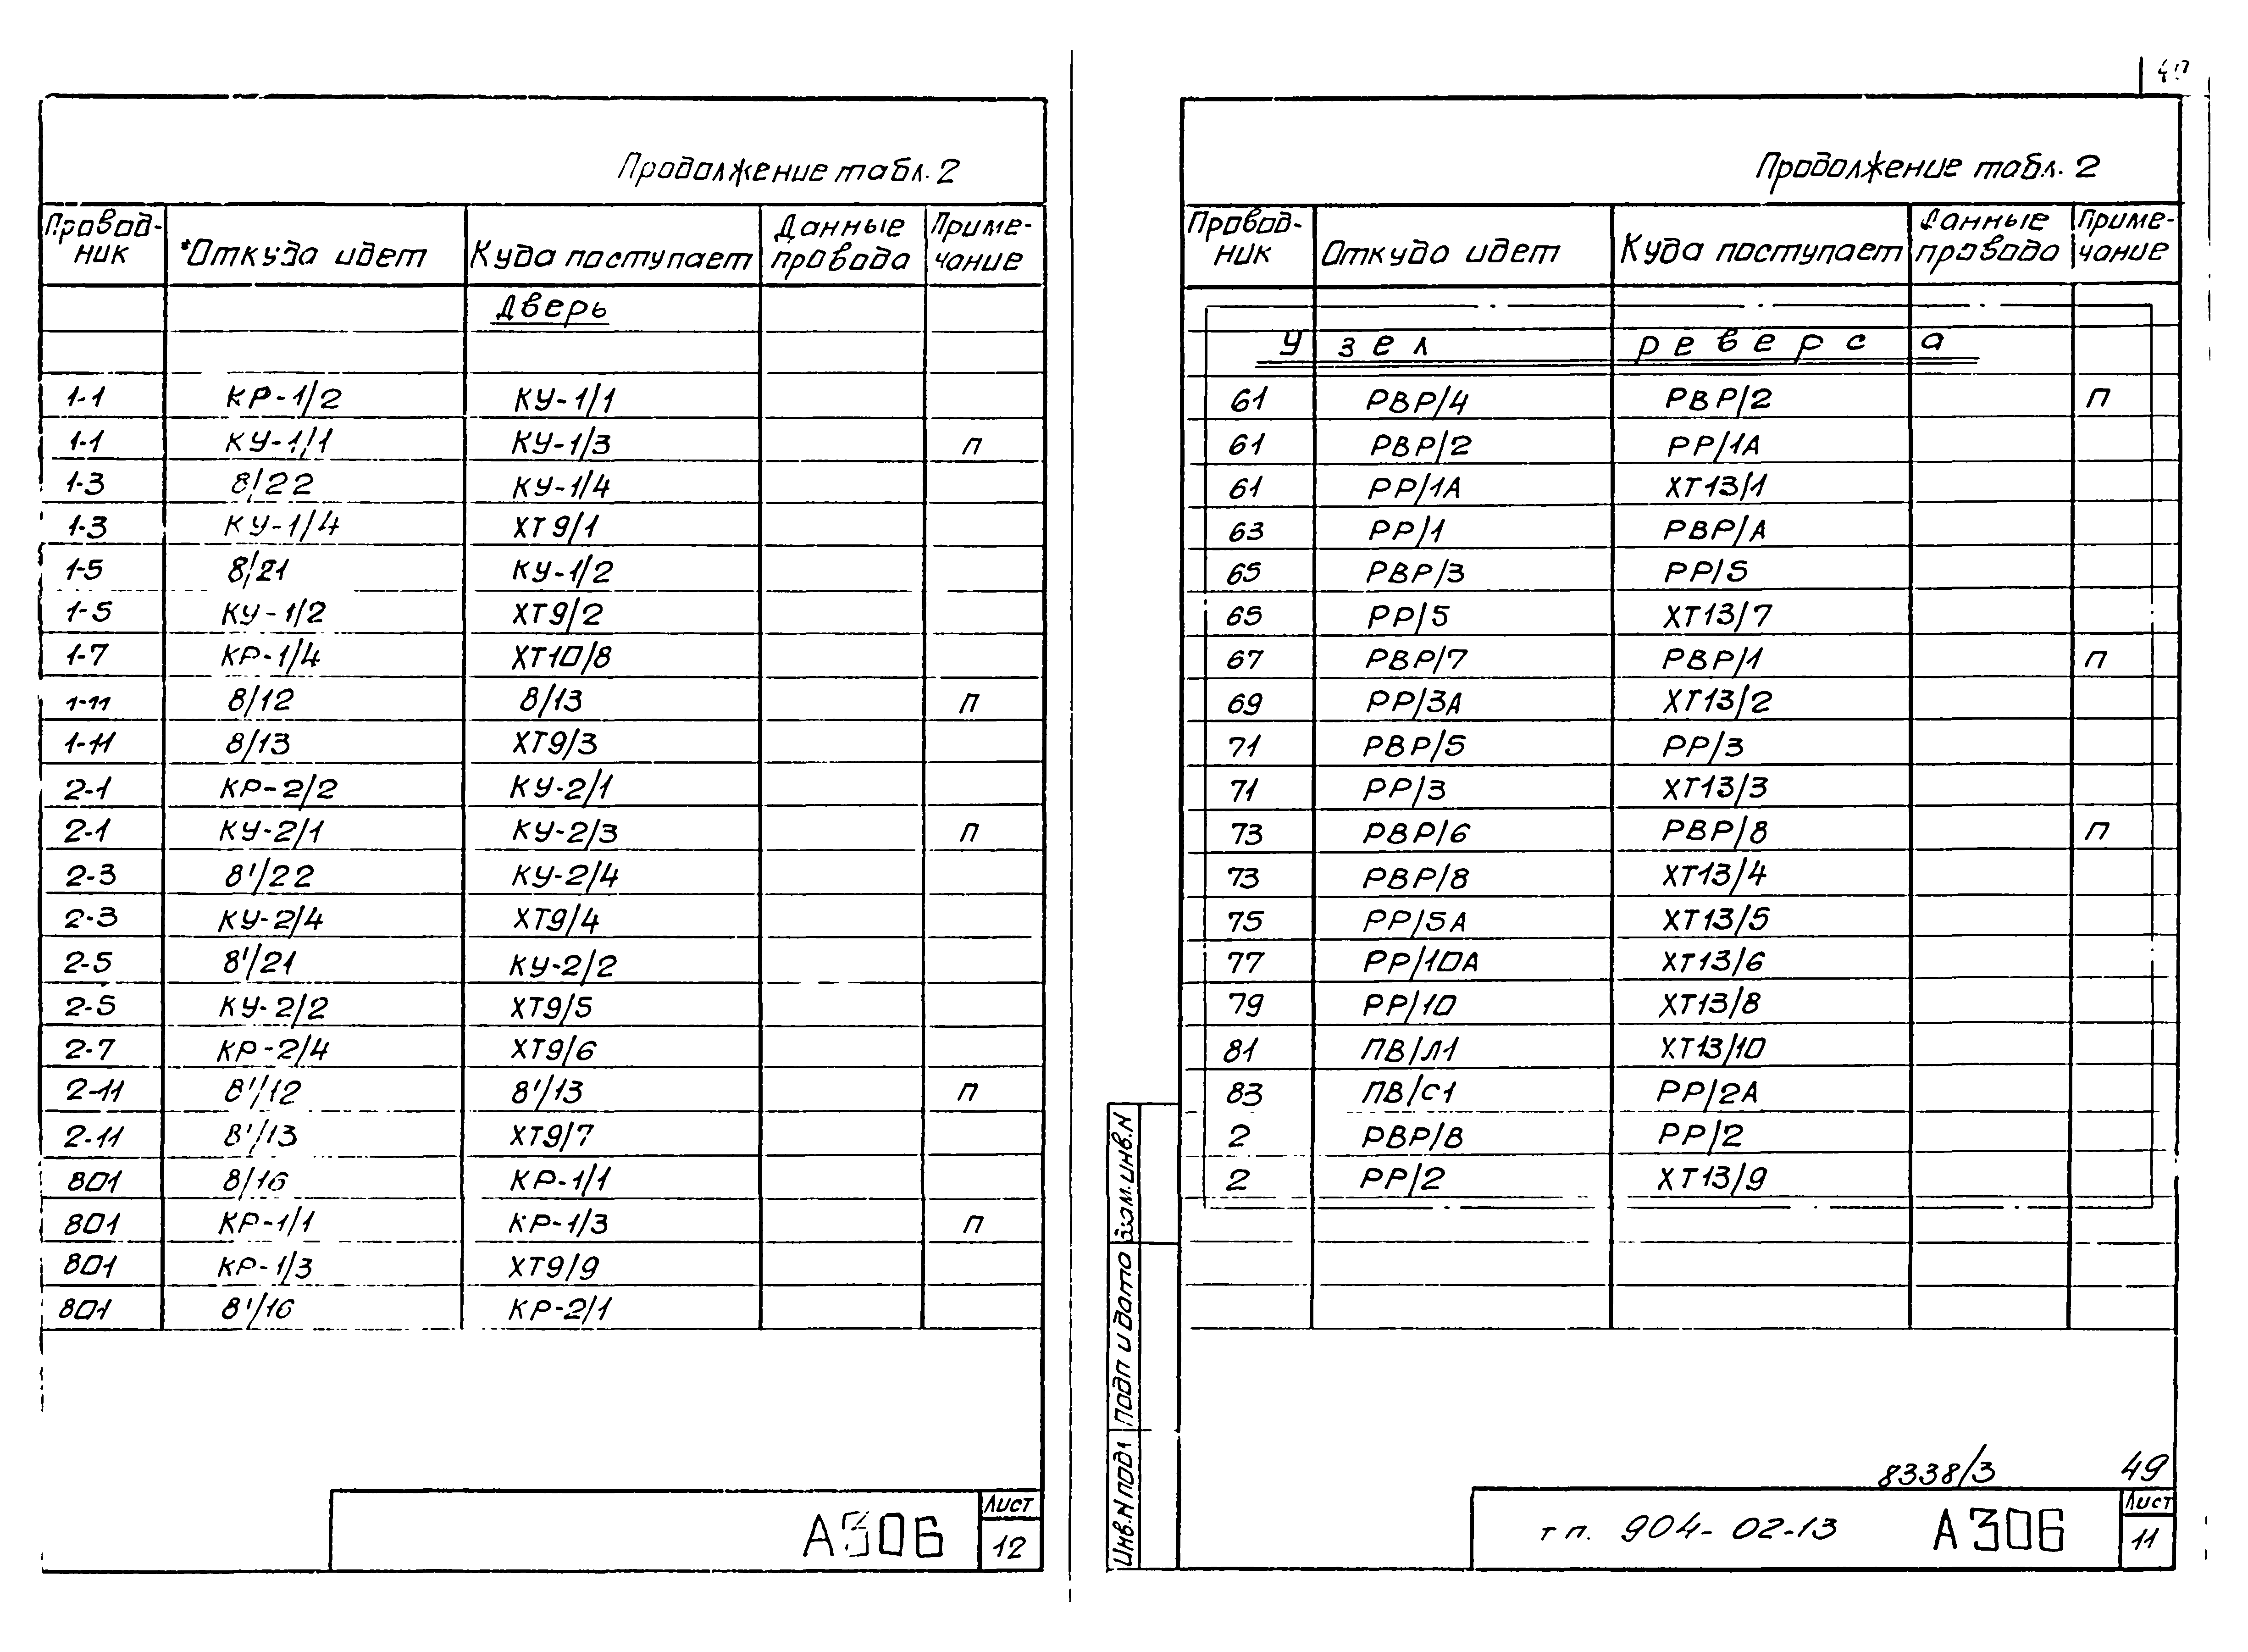 Продолжение табл. 2
Провод-ник Откуда идет Куда поступает Данные провода Приме-чание
Дверь
1-1 КР-1/2 КУ-1/1
1-1 КУ-1/1 КУ-1/3 П
1-3 8/22 КУ-1/4
1-3 КУ-1/4 ХТ9/1
1-5 8/21 КУ-1/2
1-5 КУ-1/2 ХТ9/2
1-7 КР-1/4 ХТ10/8
1-11 8/12 8/13 П
1-11 8/13 ХТ9/3
2-1 КР-2/2 КУ-2/1
2-1 КУ-2/1 КУ-2/3 П
2-3 8'/22 КУ-2/4
2-3 КУ-2/4 ХТ9/4
2-5 8'/21 КУ-2/2
2-5 КУ-2/2 ХТ9/5
2-7 КР-2/4 ХТ9/6
2-11 8'/12 8'/13 П
2-11 8'/13 ХТ9/7
801 8/16 КР-1/1
801 КР-1/1 КР-1/3 П
801 КР-1/3 ХТ9/9
801 8'/16 КР-2/1
А306
Лист
12
Продолжение табл. 2
Провод-ник Откуда идет Куда поступает Данные провода Приме-чание
Узел реверса
61 РВР/4 РВР/2 П
61 РВР/2 РР/1А
61 РР/1А ХТ13/1
63 РР/1 РВР/А
65 РВР/3 РР/5
65 РР/5 ХТ13/7
67 РВР/7 РВР/1 П
69 РР/3А ХТ13/2
71 РВР/5 РР/3
71 РР/3 ХТ13/3
73 РВР/6 РВР/8 П
73 РВР/8 ХТ13/4
75 РР/5А ХТ13/5
77 РР/10А ХТ13/6
79 РР/10 ХТ13/8
81 ПВ/Л1 ХТ13/10
83 ПВ/С1 РР/2А
2 РВР/В РР/2
2 РР/2 ХТ13/9
Взам.инв.N
Подп и дата
Инв.N подл
8338/3 49
тп. 904-02-13 А306
Лист
11